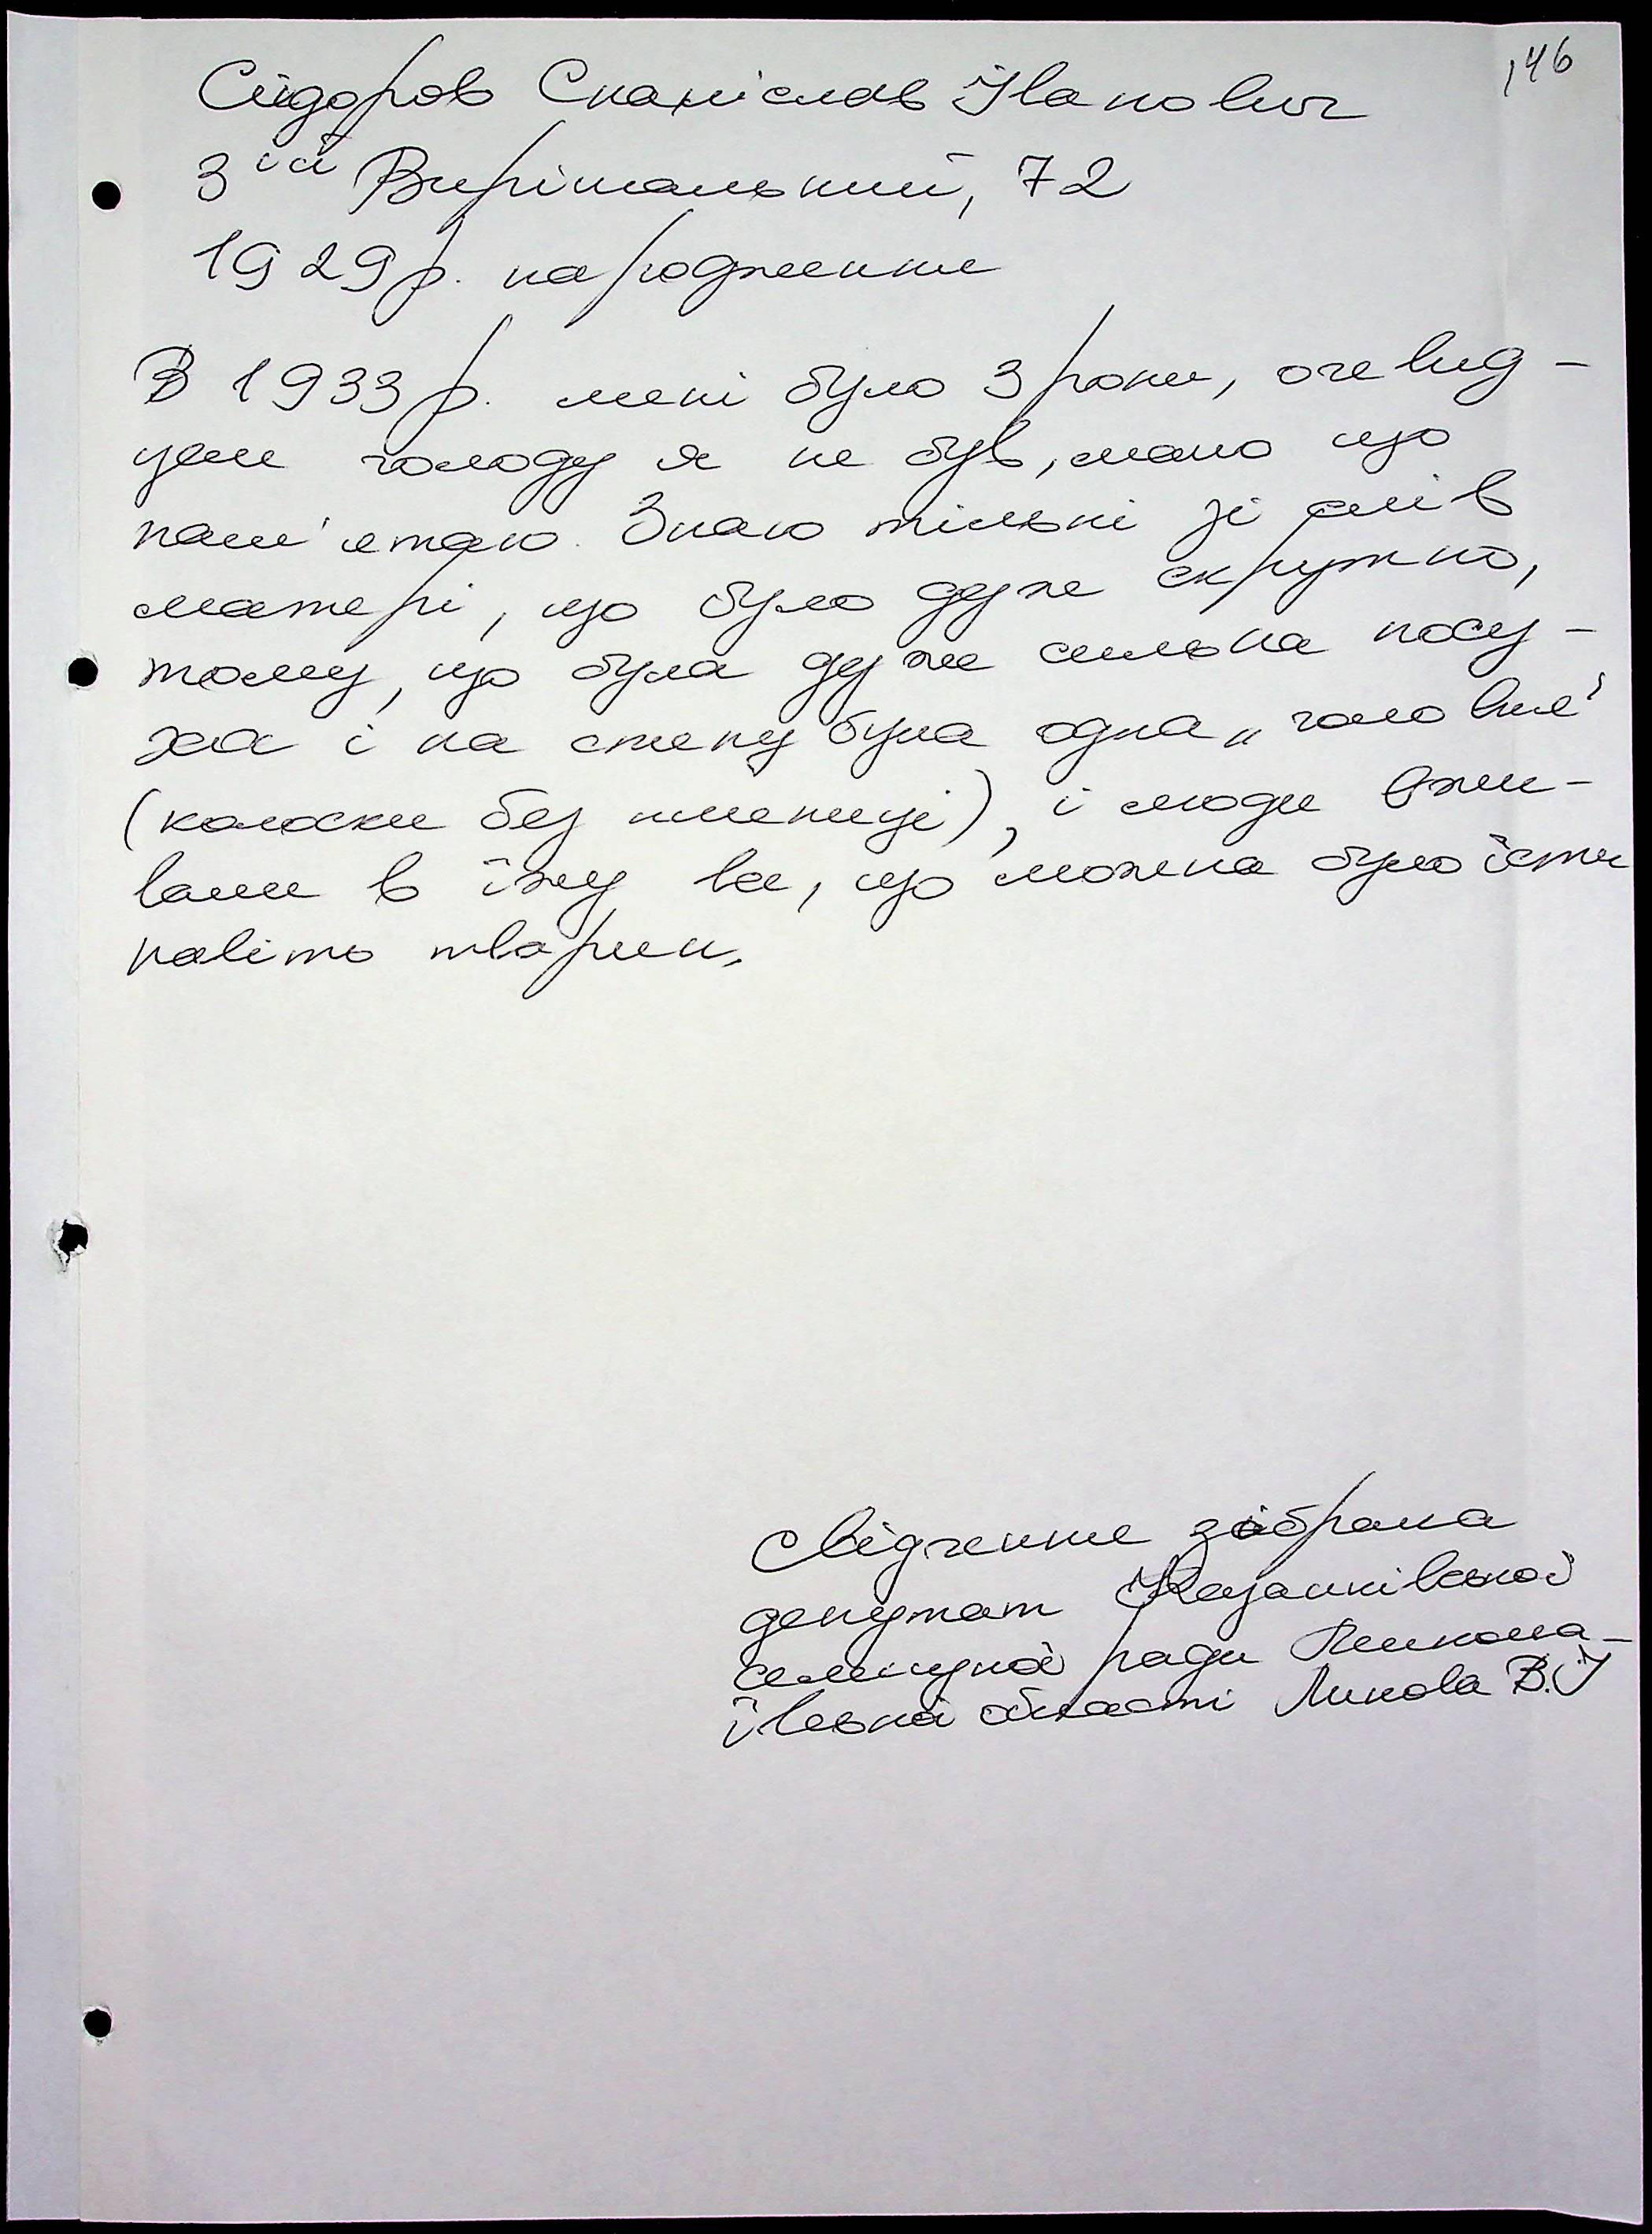 146
Сидоров Станіслав Іванович
3ій Вирішальний, 72
1929 р. народження
В 1933 р. мені було 3 роки, очевид-
цем голоду я не був, мало що
пам'ятаю. Знаю тількі зі слів
матері, що було дуже скрутно,
тому, що була дуже сильна посу-
ха і на степу була одна „головня"
(колоски без пшениці), і люди вжи-
вали в їжу все, що можна було їсти
навіть тварин.
Свідчення зібрала
депутат Казанківської
селищної ради Микола-
ївської області Линова В.І